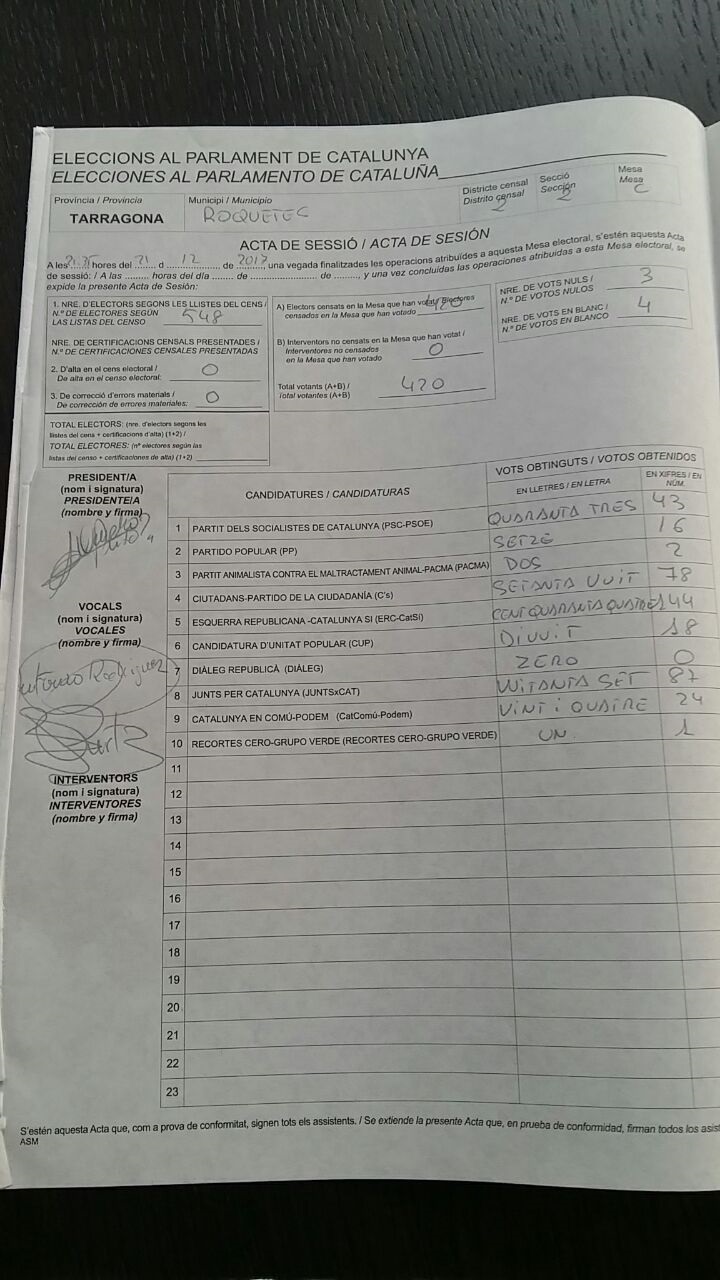 ELECCIONS AL PARLAMENT DE CATALUNYA
ELECCIONES AL PARLAMENTO DE CATALUÑA
Província / Provincia
TARRAGONA
Municipi / Municipio
ROQUETES
Districte censal
Distrito censal
2
Secció
Sección
2
Mesa
Mesa
C
ACTA DE SESSIÓ / ACTA DE SESIÓN
A les 21:35 hores del 21 d 12 de 2017, una vegada finalitzades les operacions atribuïdes a aquesta Mesa electoral, s'estén aquesta Acta
de sessió: / A las ........ horas del día ........ de .................... de ........, y una vez concluidas las operaciones atribuidas a esta Mesa electoral, se
expide la presente Acta de Sesión:
1. NRE. D'ELECTORS SEGONS LES LLISTES DEL CENS /
N.º DE ELECTORES SEGÚN
LAS LISTAS DEL CENSO 548
NRE. DE CERTIFICACIONS CENSALS PRESENTADES /
N.º DE CERTIFICACIONES CENSALES PRESENTADAS
2. D'alta en el cens electoral /
De alta en el censo electoral: 0
3. De correcció d'errors materials /
De corrección de errores materiales: 0
TOTAL ELECTORS: (nre. d'electors segons les
llistes del cens + certificacions d'alta) (1+2) /
TOTAL ELECTORES: (nº electores según las
listas del censo + certificaciones de alta) (1+2)
A) Electors censats en la Mesa que han votat / Electores
censados en la Mesa que han votado 420
B) Interventors no censats en la Mesa que han votat /
Interventores no censados
en la Mesa que han votado 0
Total votants (A+B) /
Total votantes (A+B) 420
NRE. DE VOTS NULS /
N.º DE VOTOS NULOS 3
NRE. DE VOTS EN BLANC /
N.º DE VOTOS EN BLANCO 4
PRESIDENT/A
(nom i signatura)
PRESIDENTE/A
(nombre y firma)
VOCALS
(nom i signatura)
VOCALES
(nombre y firma)
INTERVENTORS
(nom i signatura)
INTERVENTORES
(nombre y firma)
CANDIDATURES / CANDIDATURAS
VOTS OBTINGUTS / VOTOS OBTENIDOS
EN LLETRES / EN LETRA
EN XIFRES / EN
NÚM.
1 PARTIT DELS SOCIALISTES DE CATALUNYA (PSC-PSOE) QUARANTA TRES 43
2 PARTIDO POPULAR (PP) SETZE 16
3 PARTIT ANIMALISTA CONTRA EL MALTRACTAMENT ANIMAL-PACMA (PACMA) DOS 2
4 CIUTADANS-PARTIDO DE LA CIUDADANÍA (C's) SETANTA VUIT 78
5 ESQUERRA REPUBLICANA -CATALUNYA SI (ERC-CatSI) CENT QUARANTA QUATRE 144
6 CANDIDATURA D'UNITAT POPULAR (CUP) DIVUIT 18
7 DIÀLEG REPUBLICÀ (DIÀLEG) ZERO 0
8 JUNTS PER CATALUNYA (JUNTSxCAT) VUITANTA SET 87
9 CATALUNYA EN COMÚ-PODEM (CatComú-Podem) VINT I QUATRE 24
10 RECORTES CERO-GRUPO VERDE (RECORTES CERO-GRUPO VERDE) UN 1
11
12
13
14
15
16
17
18
19
20
21
22
23
S'estén aquesta Acta que, com a prova de conformitat, signen tots els assistents. / Se extiende la presente Acta que, en prueba de conformidad, firman todos los
ASM